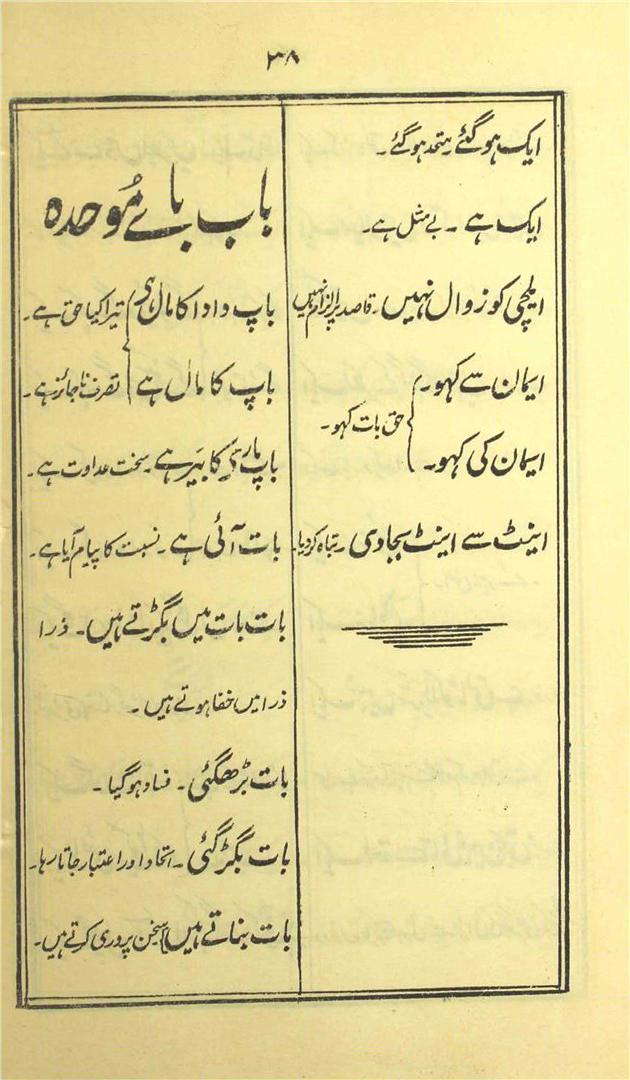 ۳۸
ایک ہو گئے۔ متحد ہو گئے۔
ایک ہے ۔ بے مثل ہے۔
ایلچی کو زوال نہیں۔ قاصد پر الزام نہیں
ایمان سے کہو۔
ایمان کی کہو۔ } حق بات کہو۔
اینٹ سے اینٹ بجا دی ۔ تباہ کر دیا۔
باب بائے مُوحدہ
باپ دادا کا مال ہی } تیرا کیا حق ہے۔
باپ کا مال ہے } تصرف ناجائز ہے۔
باپ مارے کا بَیر ہے۔ سخت عداوت ہے۔
بات آئی ہے ۔ نسبت کا پیام آیا ہے۔
بات بات میں بگڑتے ہیں۔ ذرا
ذرا میں خفا ہوتے ہیں ۔
بات بڑھ گئی ۔ فساد ہو گیا ۔
بات بگڑ گئی ۔ اتحاد اور اعتبار جاتا رہا۔
بات بناتے ہیں } سخن پروری کرتے ہیں۔